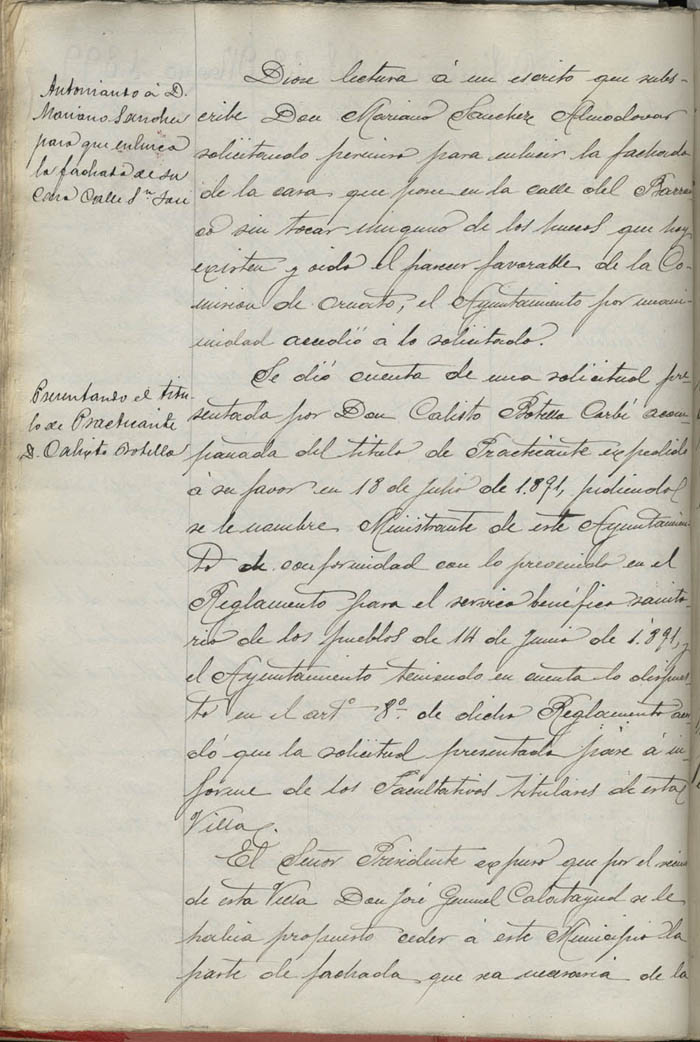 Autorizando á D.
Mariano Sanchez
para que enlusca
la fachada de su
Casa Calle Sn José
Diose lectura á un escrito que subs-
cribe Don Mariano Sanchez Almodovar
solicitando permiso para enlucir la fachada
de la casa que posee en la calle del
sin tocar ninguno de los huecos que hoy
existen y oido el parecer favorable de la Co-
mision de Ornato, el Ayuntamiento por unani-
midad accedió á lo solicitado.
Presentando el títu-
lo de Practicante
D. Calixto Botella
Se dió cuenta de una solicitud pre-
sentada por Don Calisto Botella Carbí acom-
panada del titulo de Practicante expedido
á su favor en 18 de Julio de 1.891, pidiendo
se le nombre Ministrante de este Ayuntamien
to de conformidad con lo prevenido en el
Reglamento para el servicio benéfico sanita
rio de los pueblos de 14 de Junio de 1.891, y
el Ayuntamiento teniendo en cuenta lo dispues-
to en el artº 8º de dicho Reglamento acor
dó que la solicitud presentada pase á in-
forme de los Facultativos titulares de esta
Villa.
El Señor Presidente expuso que por el vecino
de esta Villa Don José Gumiel Calatayud se le
habia propuesto ceder á este Municipio la
parte de fachada que sea necesaria de la